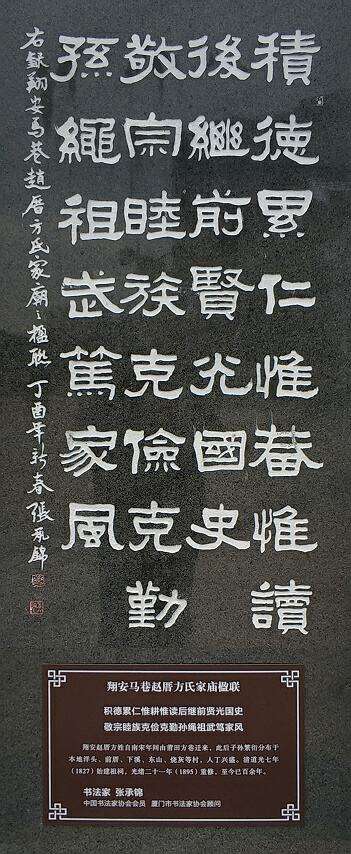 積德累仁惟畊惟讀
後繼前賢光國史
敬宗睦族克儉克勤
孫繩祖武篤家風
右録翔安馬巷趙厝方氏家廟之楹聯丁酉年新春張承錦
翔安马巷赵厝方氏家庙楹联
积德累仁惟耕惟读后继前贤光国史
敬宗睦族克俭克勤孙绳祖武笃家风
翔安赵厝方姓自南宋年间由莆田方巷迁来，此后子孙繁衍分布于
本地洋头、前厝、下溪、东山、烧灰等村，人丁兴盛。清道光七年
（1827）始建祖祠，光绪二十一年（1895）重修，至今已百余年。
书法家 张承锦
中国书法家协会会员 厦门市书法家协会顾问